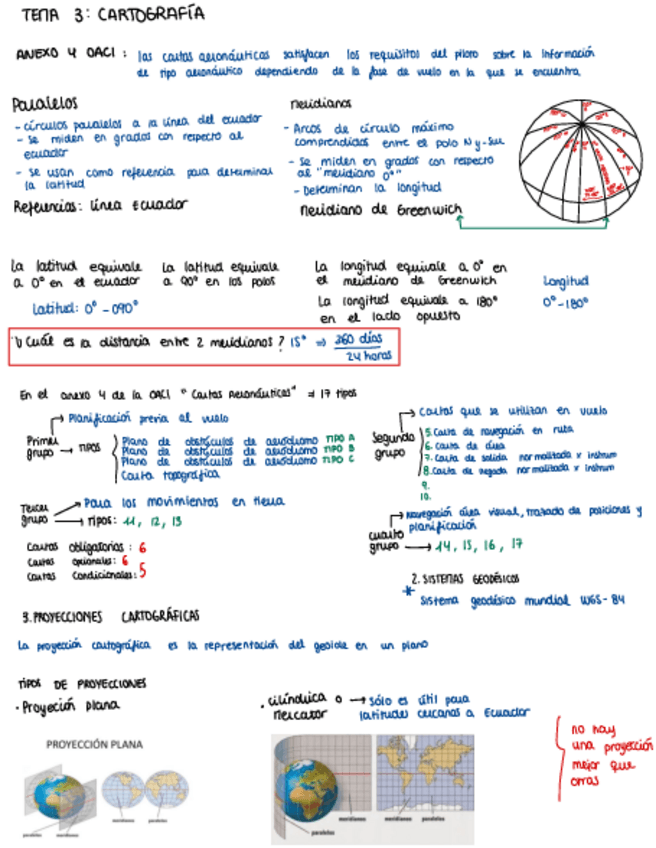 TEMA 3: CARTOGRAFÍA
ANEXO 4 OACI: las cartas aeronáuticas satisfacen los requisitos del piloto sobre la información
de tipo aeronáutico dependiendo de la fase de vuelo en la que se encuentra
Paralelos
- círculos paralelos a la línea del ecuador
- Se miden en grados con respecto al
ecuador
- se usan como referencia para determinar
la latitud
Referencias: línea Ecuador
meridianos
- Arcos de círculo máximo
comprendidos entre el polo N y-Sur
- Se miden en grados con respecto
al "meridiano 0°"
- Determinan la longitud
meridiano de Greenwich
La latitud equivale
a 0° en el ecuador
La latitud equivale
a 90° en los polos
Latitud: 0° - 090°
La longitud equivale a 0° en
el meridiano de Greenwich
La longitud equivale a 180°
en el lado opuesto
Longitud
0° - 180°
¿Cuál es la distancia entre 2 meridianos? 15° ⇒ 360 días
24 horas
En el anexo 4 de la OACI "Cartas Aeronáuticas" ⇒ 17 tipos
→ Planificación previa al vuelo
Primer
grupo → TIPOS
Plano de obstáculos de aeródromo TIPO A
Plano de obstáculos de aeródromo TIPO B
Plano de obstáculos de aeródromo TIPO C
Carta topográfica
→ Cartas que se utilizan en vuelo
Segundo
grupo
5. Carta de navegación en ruta
6. Carta de área
7. Carta de salida normalizada x instrum
8. Carta de llegada normalizada x instrum
9.
10.
Tercer
grupo
→ Para los movimientos en tierra
→ Tipos: 11, 12, 13
→ Navegación aérea visual, trazado de posiciones y
planificación
cuarto
grupo → 14, 15, 16, 17
Cartas obligatorias: 6
Cartas opcionales: 6
Cartas Condicionales: 5
2. SISTEMAS GEODÉSICOS
* Sistema geodésico mundial WGS-84
3. PROYECCIONES CARTOGRÁFICAS
La proyección cartográfica es la representación del geoide en un plano
TIPOS DE PROYECCIONES
· Proyeción plana
· Cilíndrica o
mercator
→ Sólo es útil para
latitudes cercanas a Ecuador
PROYECCIÓN PLANA
meridianos
paralelos
paralelos
meridianos
meridianos
paralelos
meridianos
paralelos
no hay
una proyección
mejor que
otras